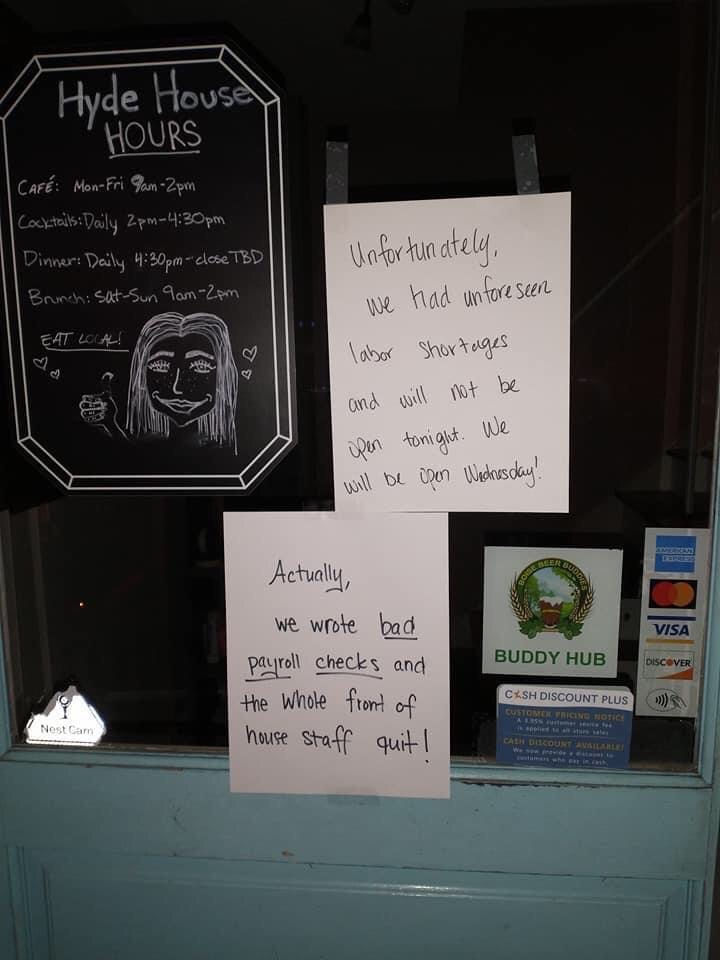 Hyde House
HOURS
CAFÉ: Mon-Fri 9am-2pm
Cocktails: Daily 2pm-4:30pm
Dinner: Daily 4:30pm-close TBD
Brunch: Sat-Sun 9am-2pm
EAT LOCAL!
Unfortunately,
we had unforeseen
labor shortages
and will not be
open tonight. We
will be open Wednesday!
Actually,
we wrote bad
payroll checks and
the whole front of
house staff quit!
BOISE BEER BUDDIES
BUDDY HUB
AMERICAN
EXPRESS
VISA
DISCOVER
CASH DISCOUNT PLUS
CUSTOMER PRICING NOTICE
A 3.95% customer service fee
is applied to all store sales
CASH DISCOUNT AVAILABLE!
We now provide a discount to
customers who pay in cash.
Nest Cam